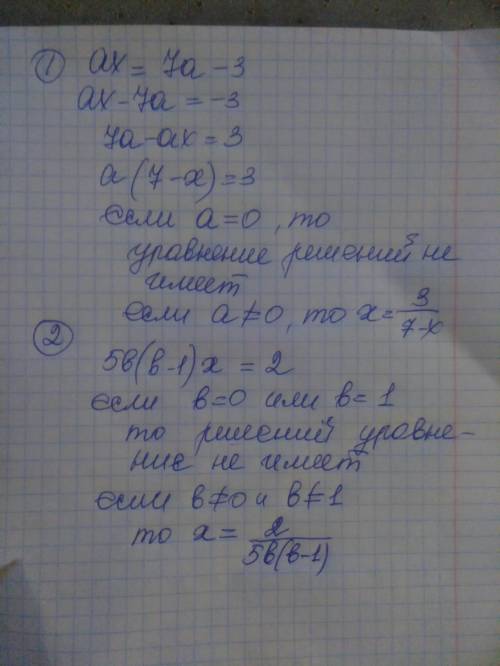 ① ax = 7a - 3
ax - 7a = -3
7a - ax = 3
a(7-x) = 3
если a = 0, то
уравнение решений не
имеет
если a ≠ 0, то x = 3/(7-x)
②
5в(в-1)x = 2
если в=0 или в=1
то решений уравне-
ние не имеет
если в≠0 и в≠1
то x = 2/(5в(в-1))